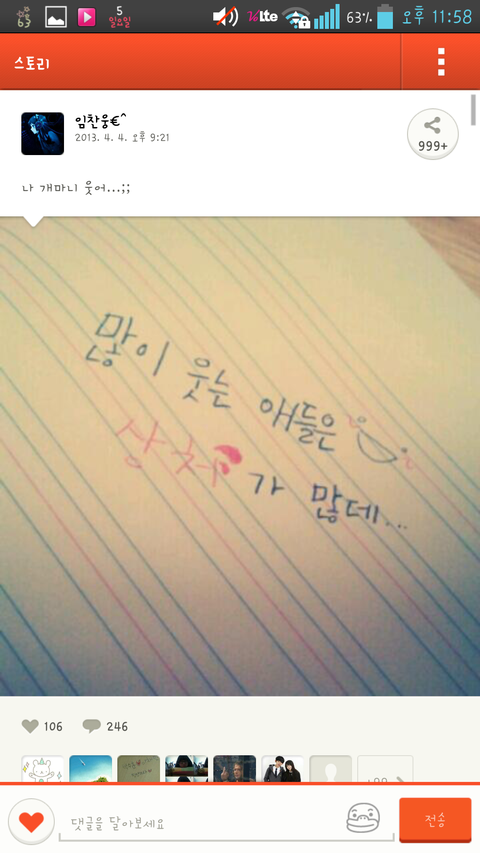 5
일요일
LTE
63%
오후 11:58
스토리
임찬웅€^
2013. 4. 4. 오후 9:21
999+
나 개마니 웃어...;;
많이 웃는 애들은
상처가 많데...
106
246
댓글을 달아보세요
전송